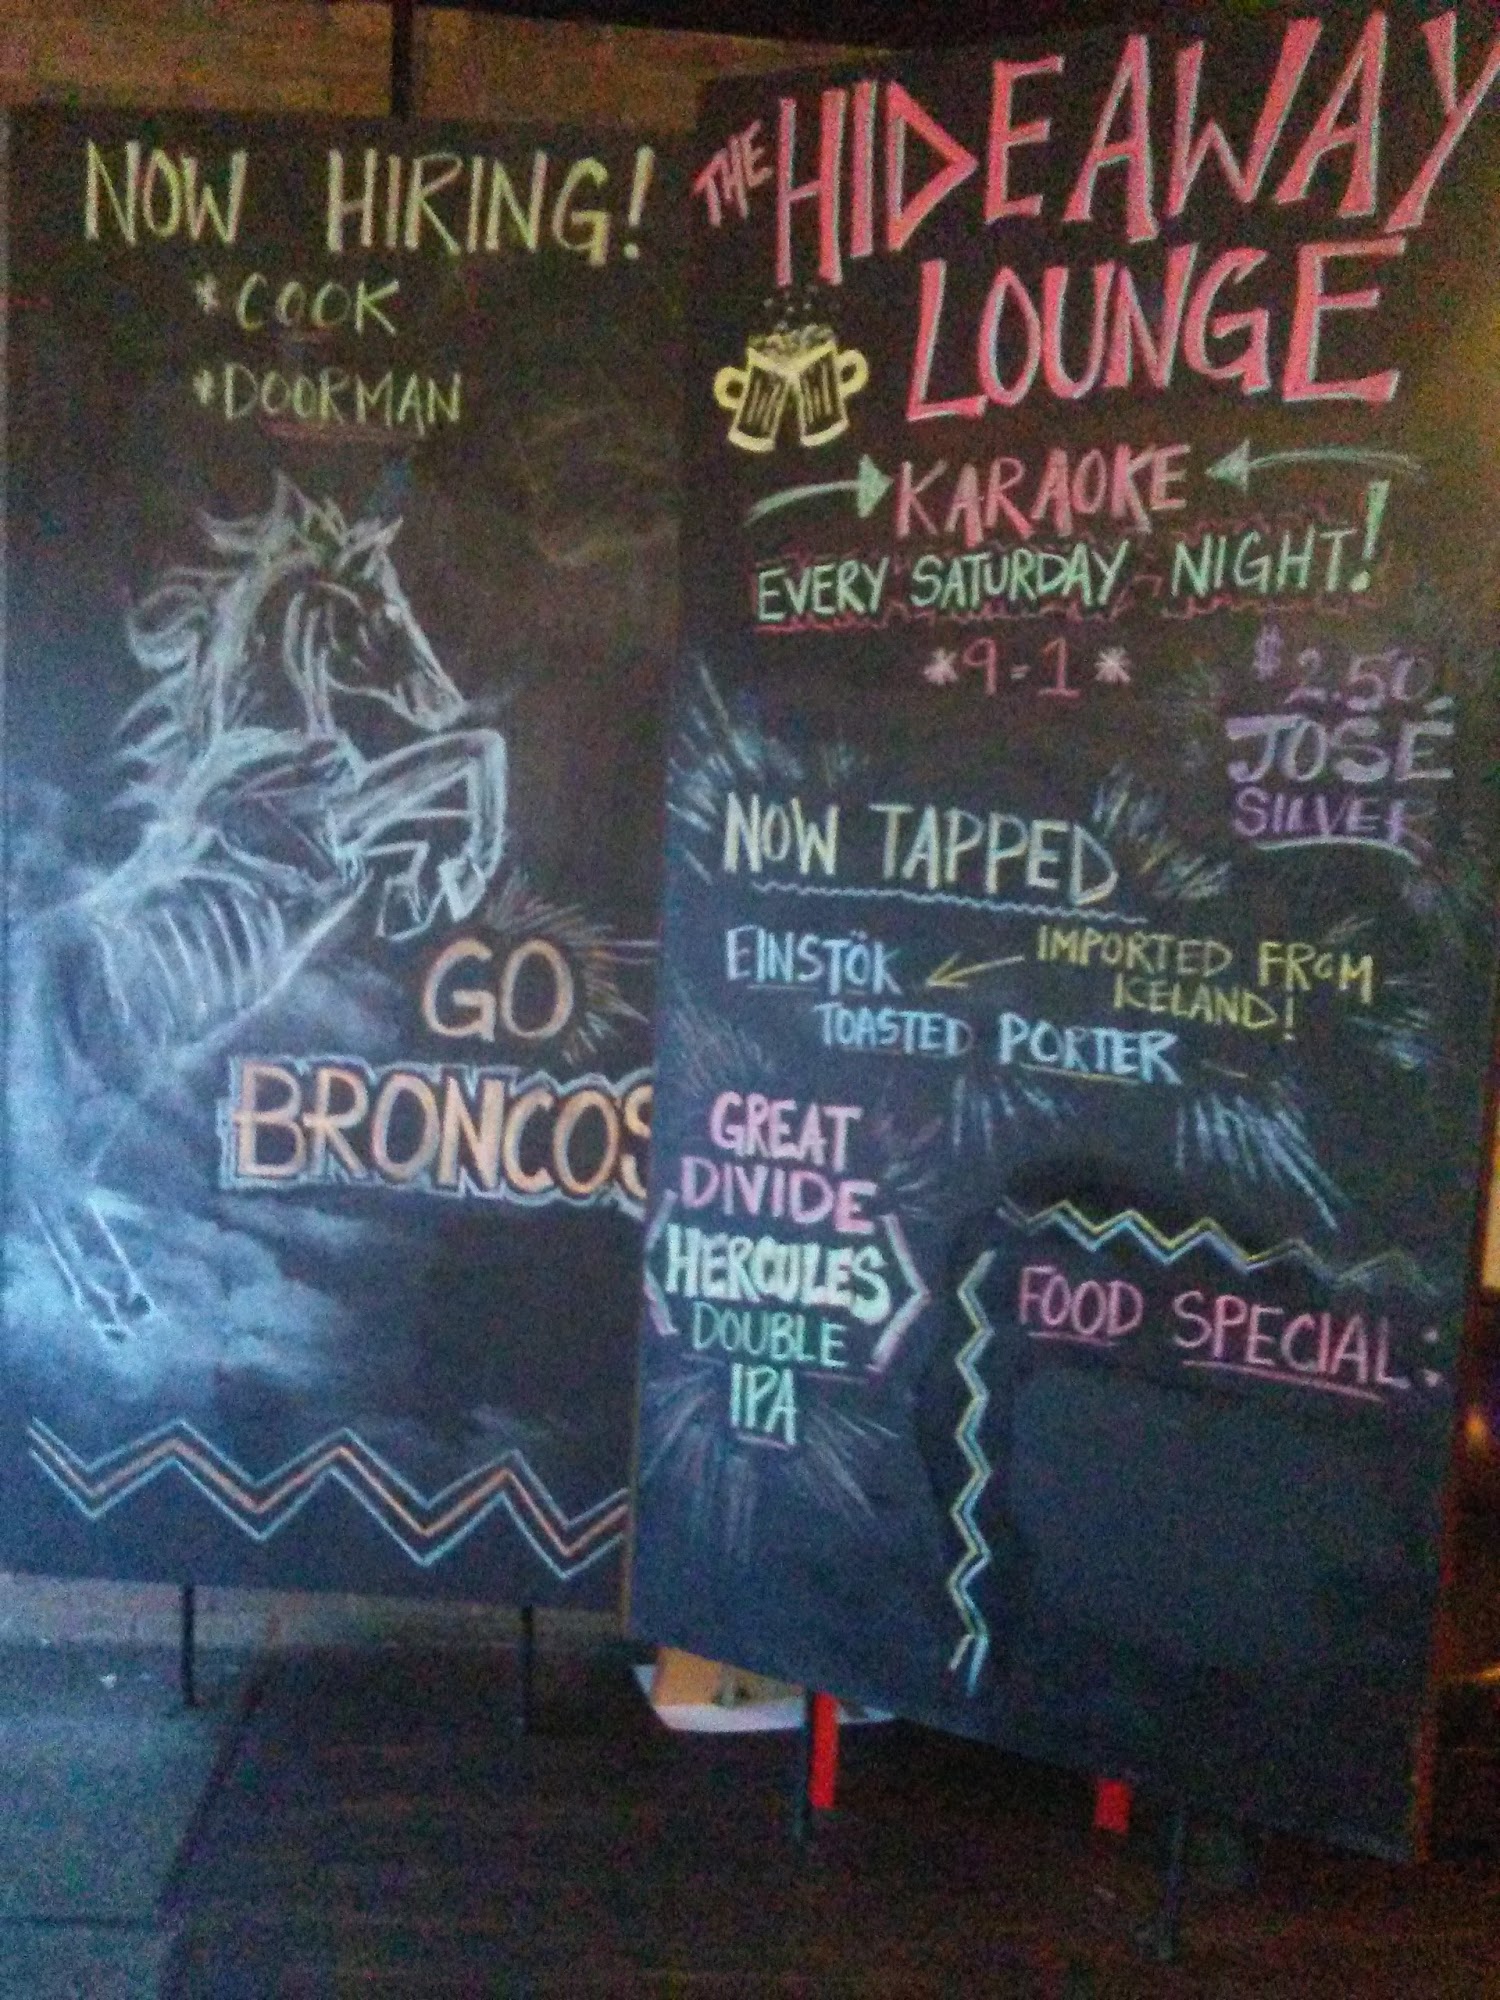 NOW HIRING!
*COOK
*DOORMAN
GO
BRONCOS
THE HIDEAWAY
LOUNGE
KARAOKE
EVERY SATURDAY NIGHT!
*9-1*
$2.50
JOSE
SILVER
NOW TAPPED
EINSTÖK
IMPORTED FROM
ICELAND!
TOASTED PORTER
GREAT
DIVIDE
HERCULES
DOUBLE
IPA
FOOD SPECIAL: